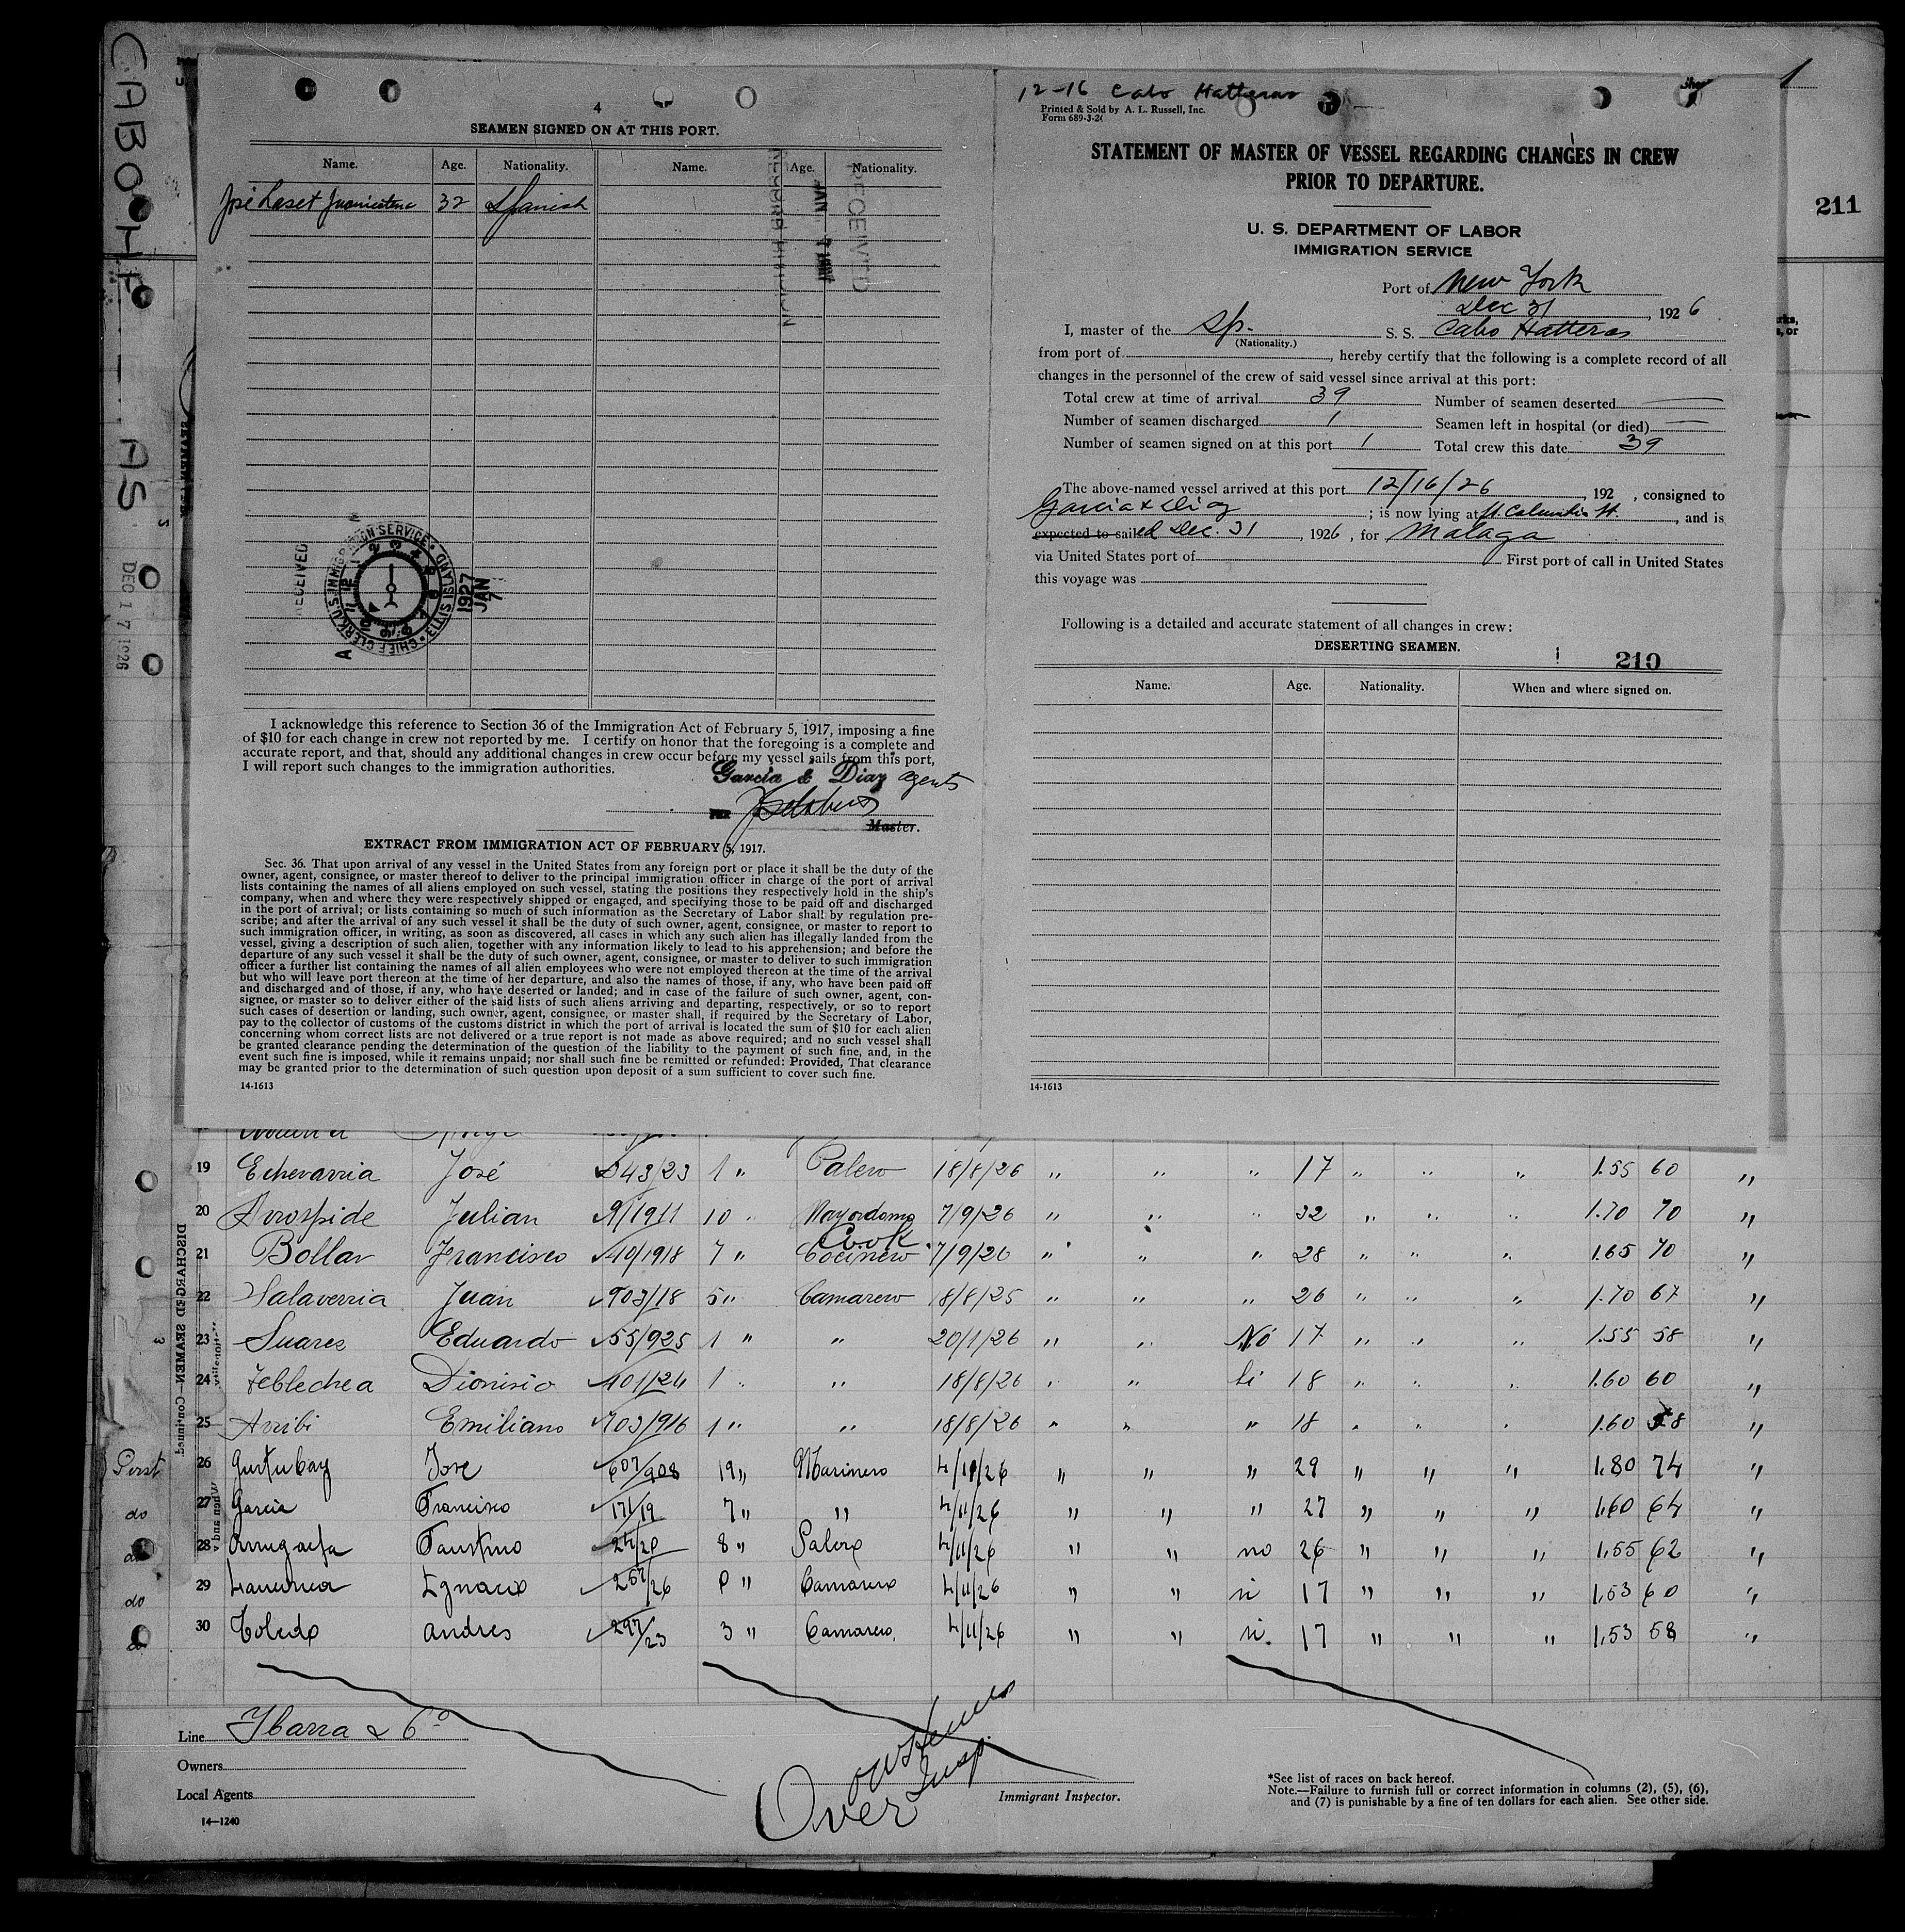 CABO HATTERAS
DEC 17 1926
4
SEAMEN SIGNED ON AT THIS PORT.
Name. Age. Nationality. Name. Age. Nationality.
José 32 Spanish
RECEIVED
JAN 7 1927
RECEIVED
CHIEF CLERK U.S. IMMIGRATION SERVICE ELLIS ISLAND
1927 JAN 7
I acknowledge this reference to Section 36 of the Immigration Act of February 5, 1917, imposing a fine
of $10 for each change in crew not reported by me. I certify on honor that the foregoing is a complete and
accurate report, and that, should any additional changes in crew occur before my vessel sails from this port,
I will report such changes to the immigration authorities.
Garcia & Diaz agents
PER
Master.
EXTRACT FROM IMMIGRATION ACT OF FEBRUARY 5, 1917.
Sec. 36. That upon arrival of any vessel in the United States from any foreign port or place it shall be the duty of the
owner, agent, consignee, or master thereof to deliver to the principal immigration officer in charge of the port of arrival
lists containing the names of all aliens employed on such vessel, stating the positions they respectively hold in the ship's
company, when and where they were respectively shipped or engaged, and specifying those to be paid off and discharged
in the port of arrival; or lists containing so much of such information as the Secretary of Labor shall by regulation pre-
scribe; and after the arrival of any such vessel it shall be the duty of such owner, agent, consignee, or master to report to
such immigration officer, in writing, as soon as discovered, all cases in which any such alien has illegally landed from the
vessel, giving a description of such alien, together with any information likely to lead to his apprehension; and before the
departure of any such vessel it shall be the duty of such owner, agent, consignee, or master to deliver to such immigration
officer a further list containing the names of all alien employees who were not employed thereon at the time of the arrival
but who will leave port thereon at the time of her departure, and also the names of those, if any, who have been paid off
and discharged and of those, if any, who have deserted or landed; and in case of the failure of such owner, agent, con-
signee, or master so to deliver either of the said lists of such aliens arriving and departing, respectively, or so to report
such cases of desertion or landing, such owner, agent, consignee, or master shall, if required by the Secretary of Labor,
pay to the collector of customs of the customs district in which the port of arrival is located the sum of $10 for each alien
concerning whom correct lists are not delivered or a true report is not made as above required; and no such vessel shall
be granted clearance pending the determination of the question of the liability to the payment of such fine, and, in the
event such fine is imposed, while it remains unpaid; nor shall such fine be remitted or refunded: Provided, That clearance
may be granted prior to the determination of such question upon deposit of a sum sufficient to cover such fine.
14-1613
12-16 Cabo Hatteras
Printed & Sold by A. L. Russell, Inc.
Form 689-3-26
STATEMENT OF MASTER OF VESSEL REGARDING CHANGES IN CREW
PRIOR TO DEPARTURE.
U. S. DEPARTMENT OF LABOR
IMMIGRATION SERVICE
Port of New York
Dec 31, 1926
I, master of the Sp. S. S. Cabo Hatteras
(Nationality.)
from port of, hereby certify that the following is a complete record of all
changes in the personnel of the crew of said vessel since arrival at this port:
Total crew at time of arrival 39 Number of seamen deserted —
Number of seamen discharged 1 Seamen left in hospital (or died) —
Number of seamen signed on at this port 1 Total crew this date 39
The above-named vessel arrived at this port 12/16/26, 192 , consigned to
Garcia & Diaz; is now lying at ft. Columbia St., and is
expected to sailed Dec. 31, 1926, for Malaga
via United States port of First port of call in United States
this voyage was
Following is a detailed and accurate statement of all changes in crew:
DESERTING SEAMEN.
210
Name. Age. Nationality. When and where signed on.
14-1613
211
DISCHARGED SEAMEN—Continued
19 Echevarria José 543/23 1 " Palero 18/8/26 " " " 17 " " " 1.55 60 "
20 Arrospide Julian 91/1911 10 " Mayordomo 7/9/26 " " " 32 " " " 1.70 70 "
Cook
21 Bollar Francisco 40/1918 7 " Cocinero 7/9/26 " " " 28 " " " 1.65 70 "
22 Salaverria Juan 703/18 5 " Camarero 18/8/25 " " " 26 " " " 1.70 67 "
23 Suarez Eduardo 55/925 1 " " 20/1/26 " " No 17 " " " 1.55 58 "
24 Dionisio 101/24 1 " " 18/8/26 " " Si 18 " " " 1.60 60 "
25 Arribi Emiliano 703/916 1 " " 18/8/26 " " " 18 " " " 1.60 58 "
First 26 Gurtubay Jose 607/908 19 " Marinero 4/11/26 " " " 29 " " " 1.80 74 "
do 27 Garcia Francisco 171/19 7 " " 4/11/26 " " " 27 " " " 1.60 64 "
do 28 Faustino 24/20 8 " Palero 4/11/26 " " no 26 " " " 1,55 62 "
do 29 Ignacio 257/26 0 " Camarero 4/11/26 " " si 17 " " " 1,53 60 "
do 30 Toledo Andres 297/23 3 " Camarero. 4/11/26 " " si. 17 " " " 1,53 58 "
Line Ybarra & Co
Owners
Local Agents
14—1240
Over
Insp.
Immigrant Inspector.
*See list of races on back hereof.
Note.—Failure to furnish full or correct information in columns (2), (5), (6),
and (7) is punishable by a fine of ten dollars for each alien. See other side.